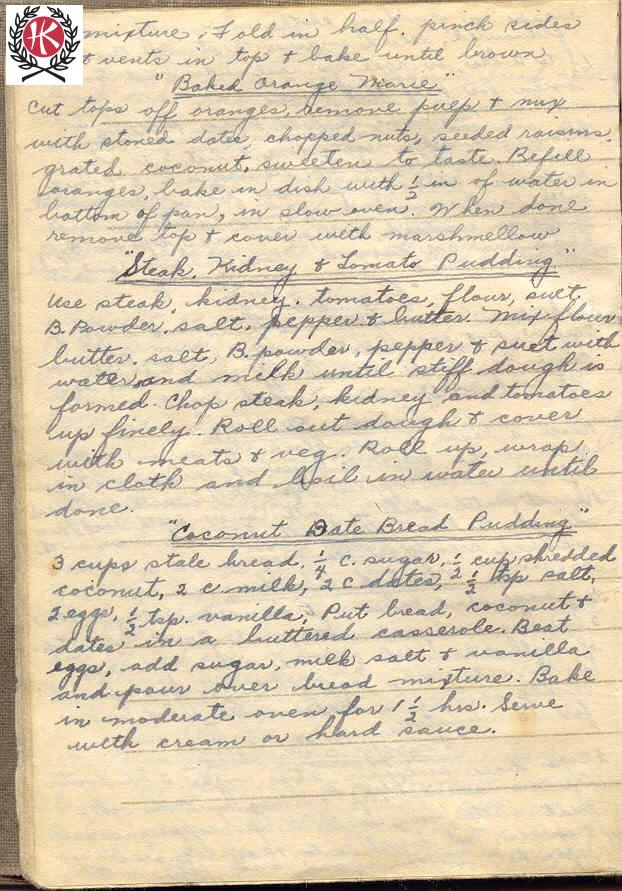 HK
mixture. Fold in half. pinch sides
t vents in top & bake until brown
"Baked Orange Marie"
Cut tops off oranges, remove pulp & mix
with stoned dates, chopped nuts, seeded raisins,
grated coconut, sweeten to taste. Refill
oranges, bake in dish with ½ in of water in
bottom of pan, in slow oven. When done
remove top & cover with marshmellow
"Steak, Kidney & Tomato Pudding"
Use steak, kidney, tomatoes, flour, suet,
B. Powder, salt, pepper & butter. Mix flour
butter, salt, B. powder, pepper & suet with
water and milk until stiff dough is
formed. Chop steak, kidney and tomatoes
up finely. Roll out dough & cover
with meats & veg. Roll up, wrap
in cloth and boil in water until
done.
"Coconut Date Bread Pudding"
3 cups stale bread, ¼ c. sugar, ½ cup shredded
coconut, 2 c milk, 2 c dates, ½ tsp salt,
2 eggs, ½ tsp. vanilla, Put bread, coconut &
dates in a buttered casserole. Beat
eggs, add sugar, milk salt & vanilla
and pour over bread mixture. Bake
in moderate oven for 1½ hrs. Serve
with cream or hard sauce.